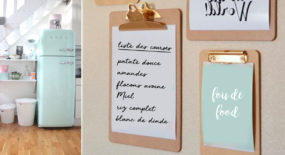 World
liste des courses
patate douce
amandes
flocons avoine
Miel
riz complet
blanc de dinde
fou de
food